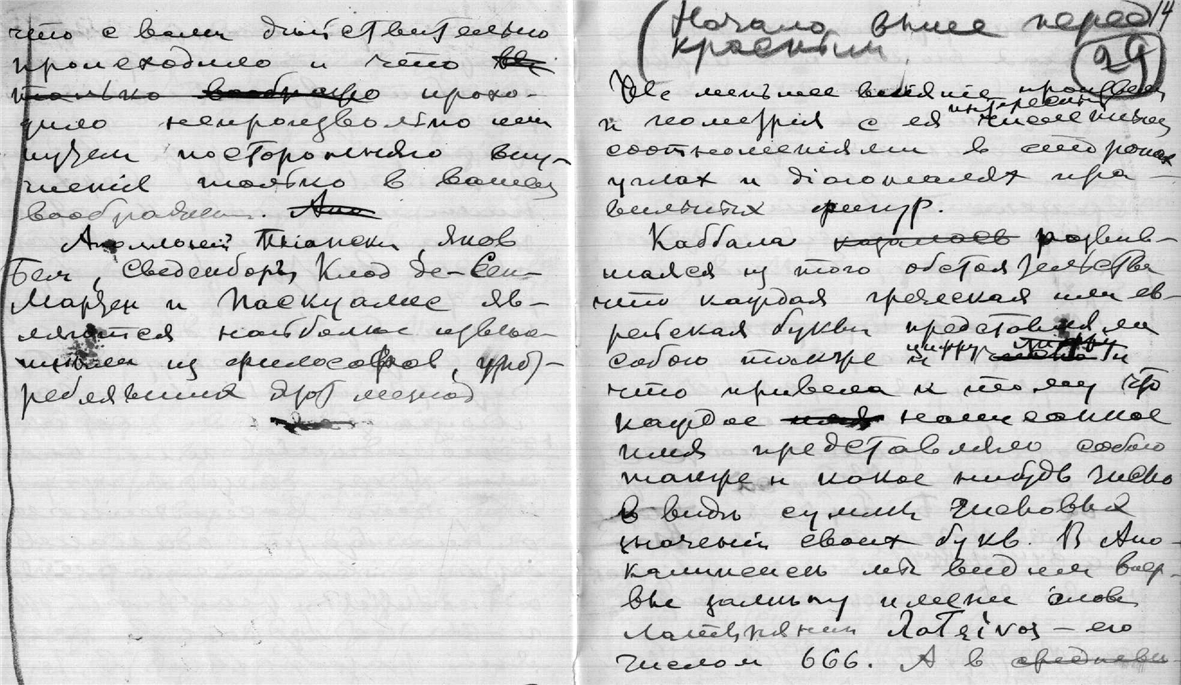 что с вами действительно
происходило и что
только вообще прохо-
дило непроизвольно или
путем посторонняго вну-
шенія только в вашем
воображении.
Аполлоній Тіанскій, Яков
Бем, Сведенборг, Клод де-Сен-
Мартен и Паскуалис яв-
ляются наиболее извес-
тными из философов, упот-
реблявших этот метод
(Начало выше перед 14
красным 29
Не меньшее вліяніе произвела
и геометрія с ея интересными
численными
соотношеніями в сторонах
углах и діагоналях пра-
вильных фигур.
Каббала казалось развив-
шаяся из того обстоятельства
что каждая греческая или ев-
рейская буква представляла
собою также и цифру
что привело к тому что
каждое написанное
имя представляло собою
также и какое нибудь число
в виде суммы числовых
значеній своих букв. В Апо-
калипсисе мы видим впер-
вые замену имени слова
латинянин Λατεῖνος – его
числом 666. А в средневе-